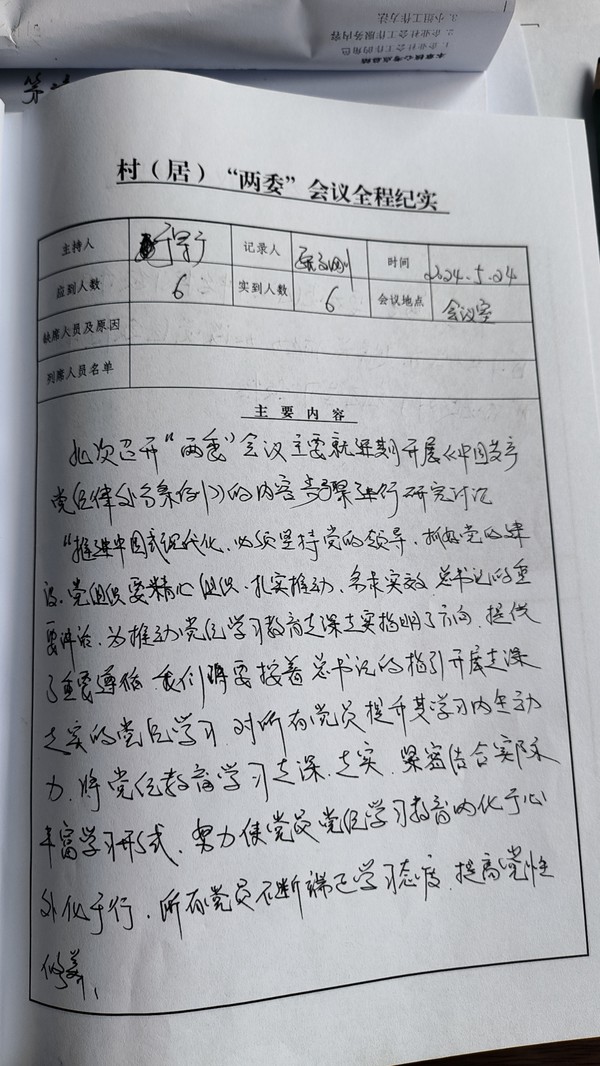 本章核心考点总结
1. 企业社会工作的角色
2. 企业社会工作服务内容
3. 小组工作方法
村（居）“两委”会议全程纪实
主持人 记录人 时间 2024.5.24
应到人数 6 实到人数 6 会议地点 会议室
缺席人员及原因
列席人员名单
主要内容
此次召开“两委”会议主要就近期开展《中国共产
党纪律处分条例》的内容步骤进行研究讨论
“推进中国式现代化，必须坚持党的领导、抓好党的建
设，党组织要精心组织、扎实推动、务求实效，总书记的重
要讲话，为推动党纪学习教育走深走实指明了方向，提供
了重要遵循，我们将要按着总书记的指引开展走深
走实的党纪学习，对所有党员提升其学习内生动
力，将党纪教育学习走深、走实，紧密结合实际
丰富学习形式，努力使党员党纪学习教育内化于心
外化于行，所有党员不断端正学习态度，提高党性
修养，